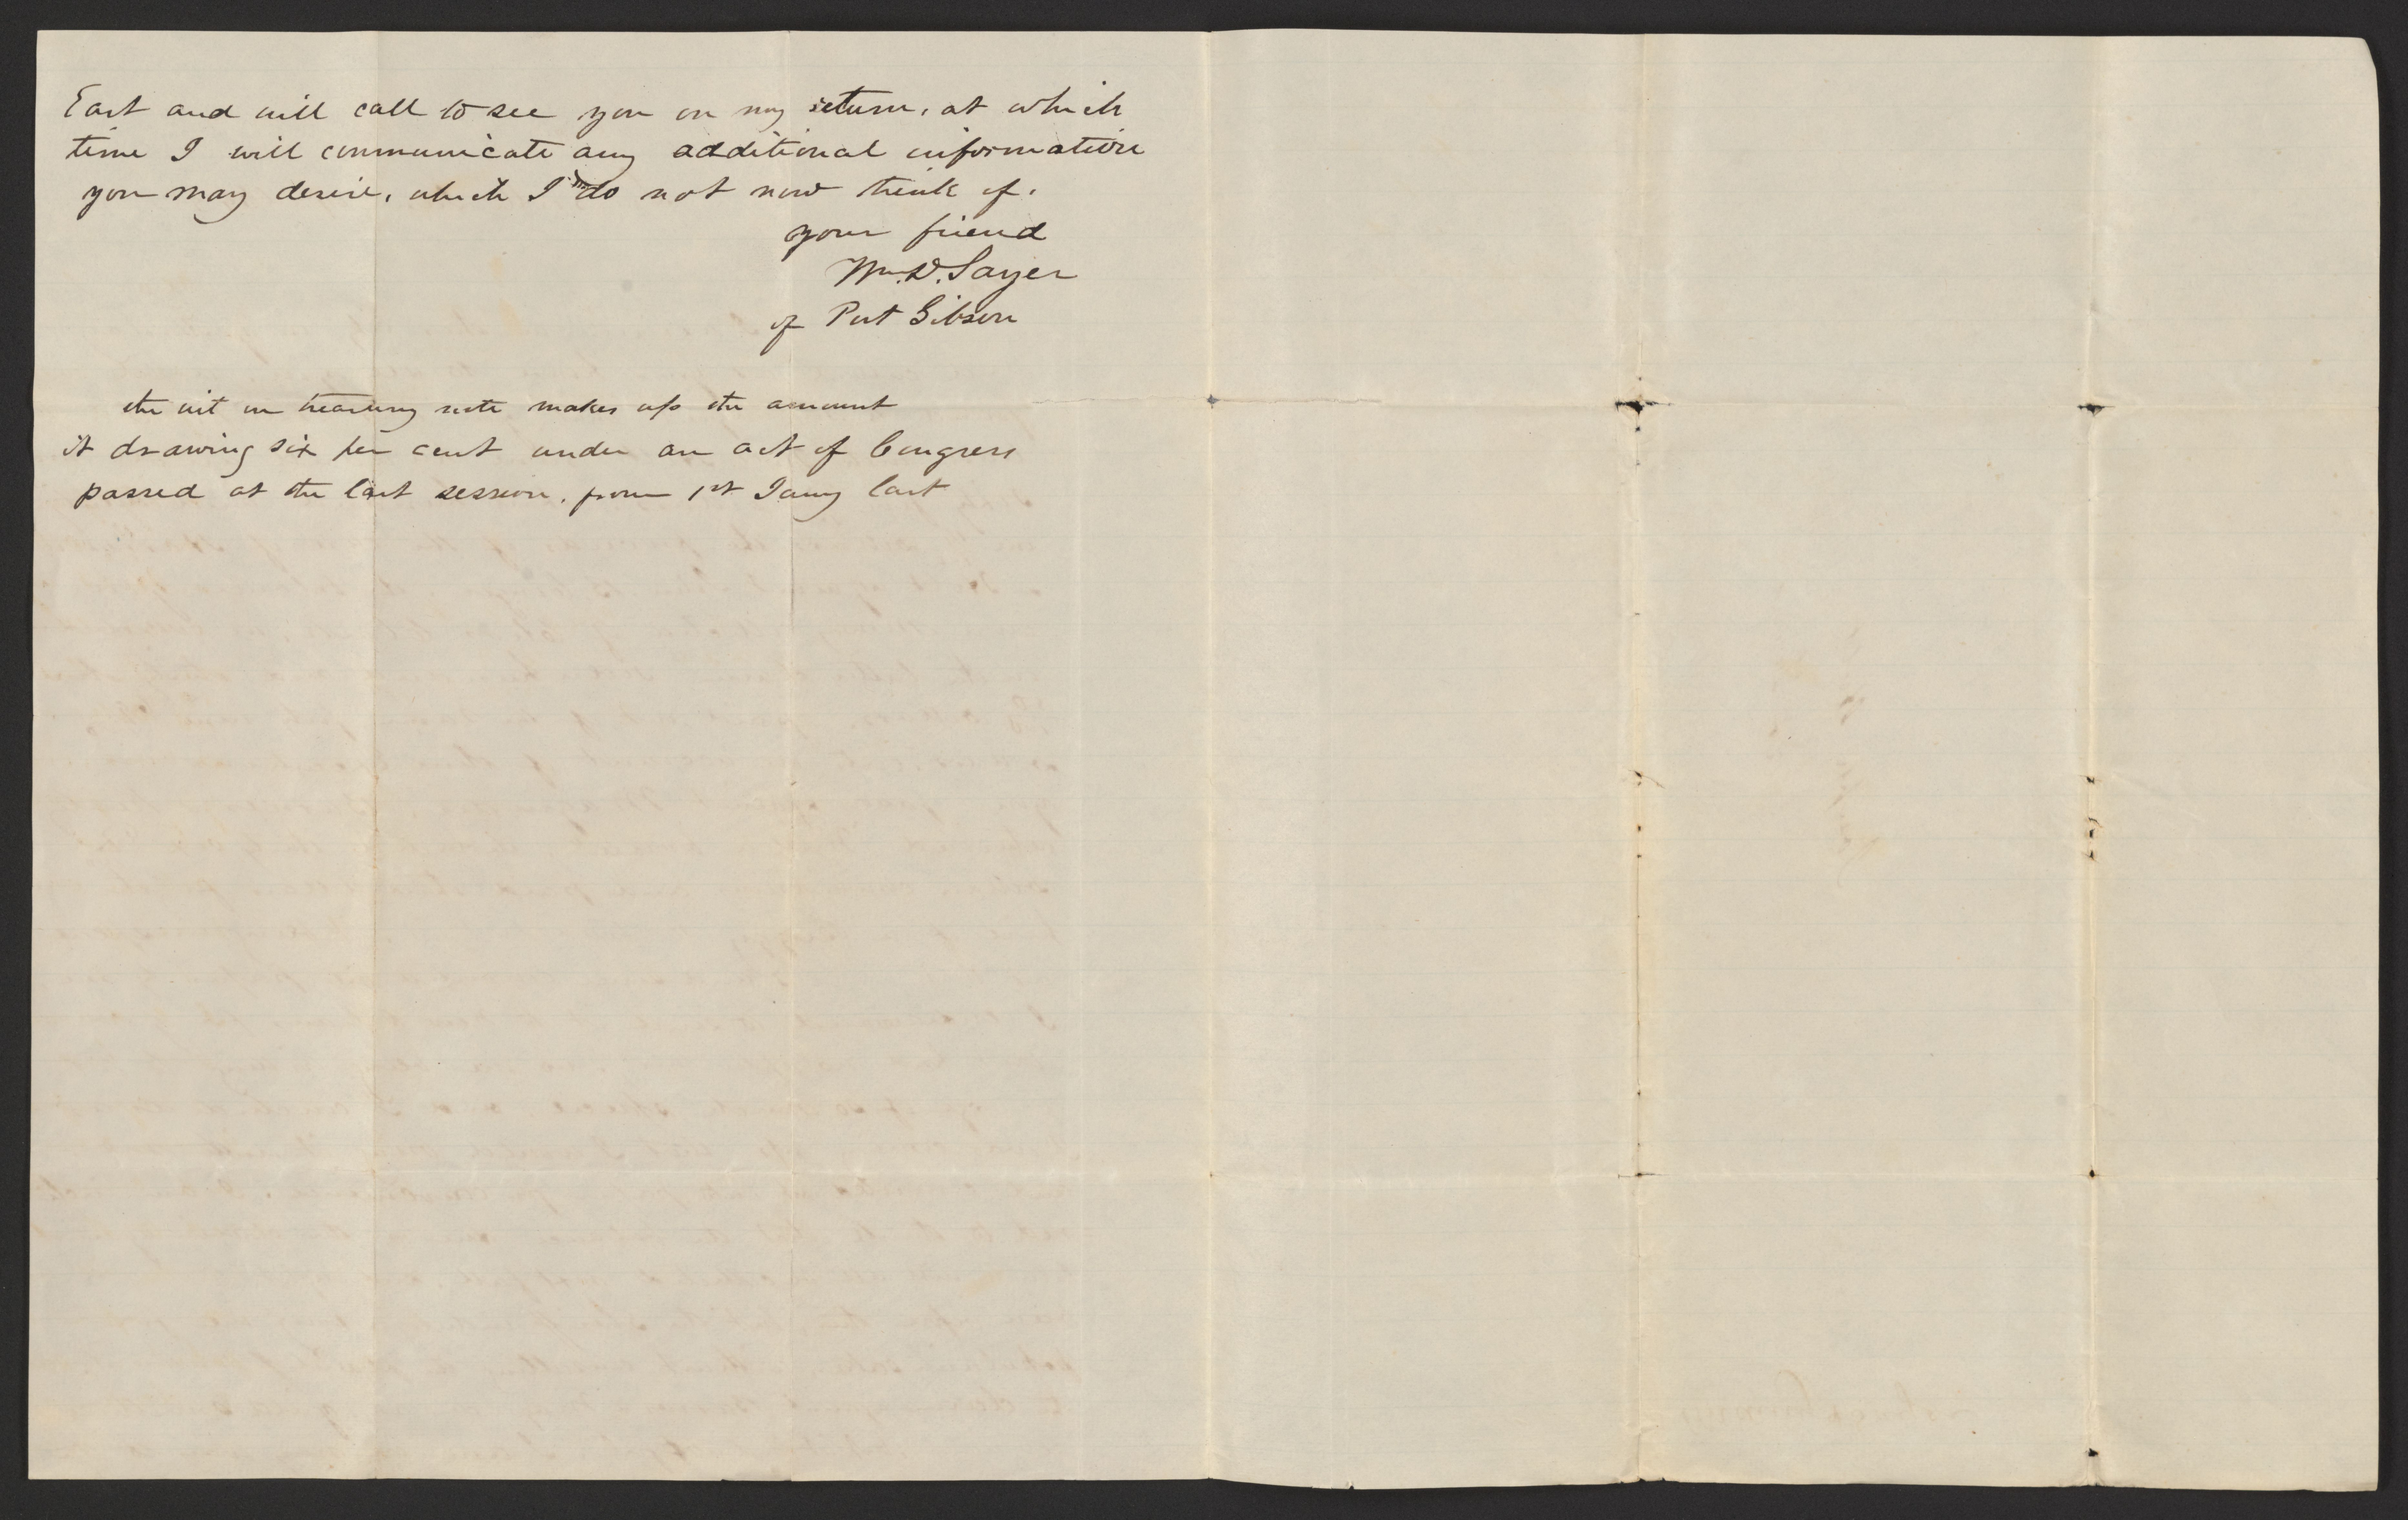 East and will call to see you on my return, at which
time I will communicate any additional information
you may desire, which I do not now think of.
your friend
Wm. D. Sayer
of Port Gibson
the int on treasury note makes up the amount
it drawing six per cent under an act of Congress
passed at the last session, from 1st Jany last